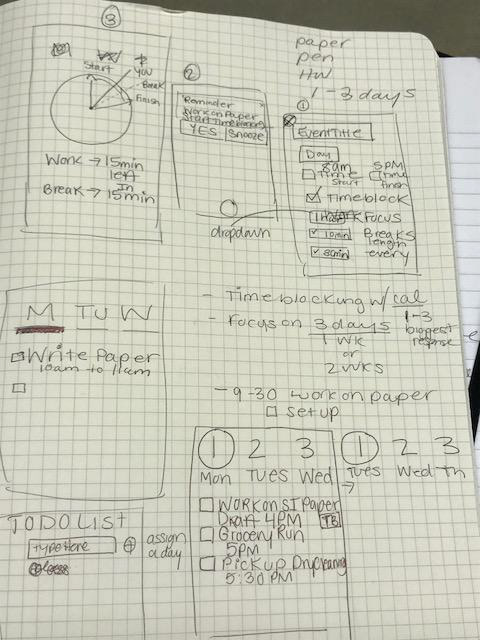 ③
Start
YOU
Break
Finish
Work → 15min
left
Break → In
15min
②
Reminder
Work on Paper
Start Timeblocking
YES Snooze
dropdown
paper
pen
HW
1 - 3 days
①
Event Title
Day
8am 5PM
Time start Time finish
Timeblock
Focus
10min Breaks length
30min every
M TU W
Write Paper
10am to 11am
- Timeblocking w/ cal
- Focus on 3 days
1 WK
or
2 WKS
1-3
biggest
- 9-30 work on paper
set up
① 2 3
Mon Tues Wed
Work on SI Paper
Draft 4PM TB
Grocery Run
5PM
Pick up Drycleaning
5:30 PM
① 2 3
Tues Wed Th
→
TODO LIST
Type Here
assign
a day